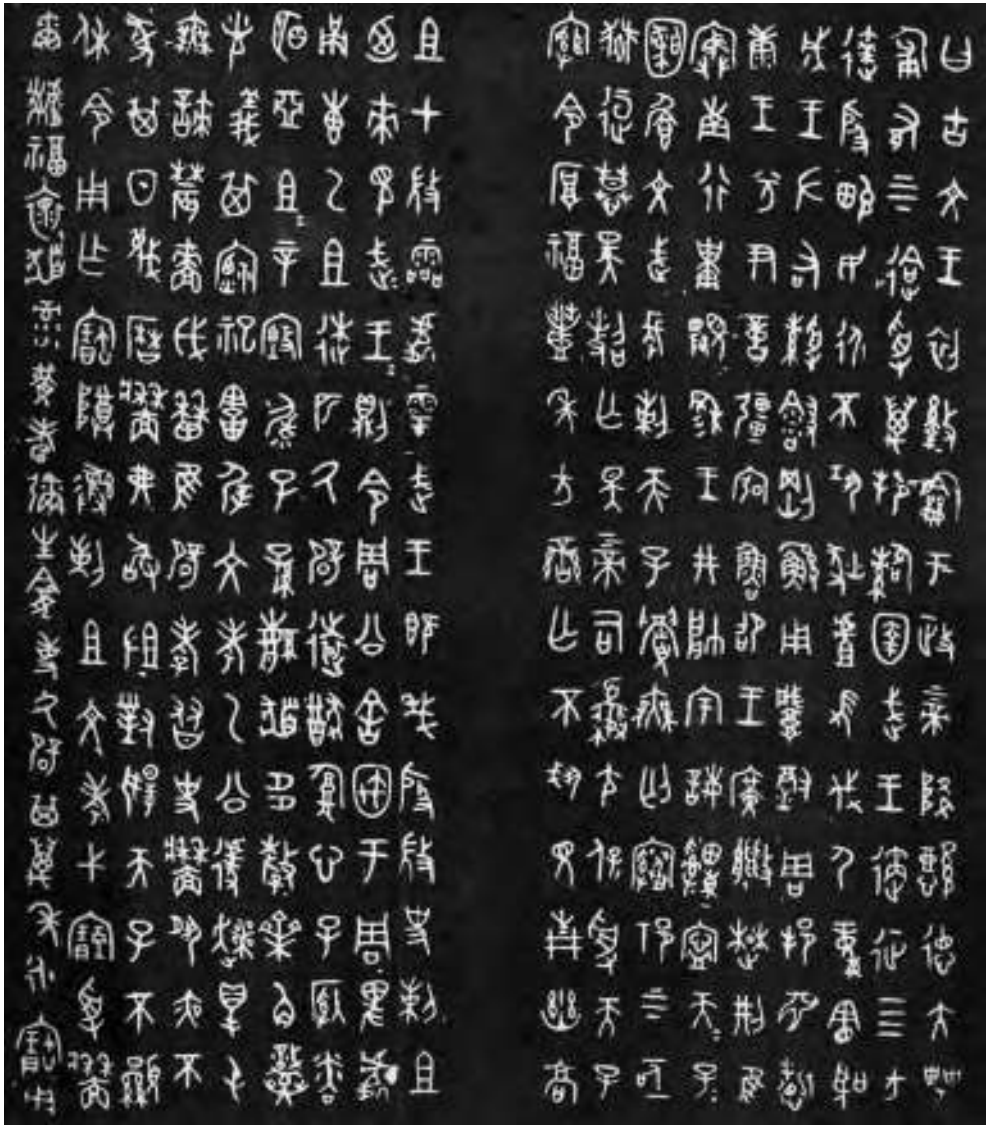 曰古文王初盭龢于政上帝降懿德大甹
匍有上下迨受萬邦䚄圉武王遹征四方
達殷畯民永不巩狄虘𢼸伐尸童憲聖
成王左右綬䋣剛鯀用肇徹周邦淵哲
康王兮尹億疆宖魯卲王廣𢾾楚荊隹
狩南行祗覭穆王井帥宇誨申寧天子
圝纘文武長剌天子眉無匄𩁹祁上下亟
獄逗慕昊照亡斁上帝司夒尢保受天子
綰令厚福豐年方蠻亡不𢦚見青幽高
且在微霝處雩武王既𢦏殷微史剌且
迺來見武王則令周公舍宇于周卑處
甬惠乙且逨匹厥辟遠猷腹心子納粦
明亞且辛𡫳毓子孫繁祓多釐齊角熾
光義其禋祀害遲文考乙公遽爽得屯
無諫農穡戉𤯍隹辟孝友史墙夙夜不
墜其日蔑曆墙弗敢沮對揚天子不顯
休令用乍寶尊彝剌且文考弋𥧲受墙
爾𪓐福懷祓彔黃耇彌生龕事厥辟其萬年永寶用